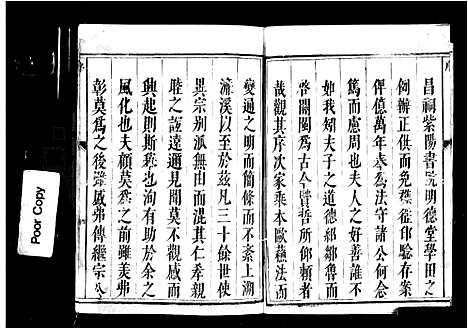 昌祠紫陽書院明德堂學田之
例辦正供而免襍徭印驗存案
俾億萬年奉為法守諸公何其
慮而周也夫人之好善誰不
如我矧夫子之道德鄒魯而
啓閩為古今賢哲所仰賴者
哉觀其序次家乘本歐蘇法而
變通之明而簡條而不紊上溯
濂溪以至於茲凡三十餘世使
異宗别派無由而混其仁孝敦
睦之誼遠邇見聞莫不觀感而
興起則斯乘也洵有助於余之
風化也夫顧莫為之前雖美弗
彰莫為之後雖盛弗傳繼宗公
Poor Copy